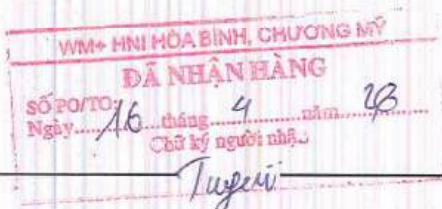 WM+ HNI HÒA BÌNH, CHƯƠNG MỸ
ĐÃ NHẬN HÀNG
SỐ PO/TO:
Ngày.....16...tháng.....4.........năm....23
Chữ ký người nhậ..